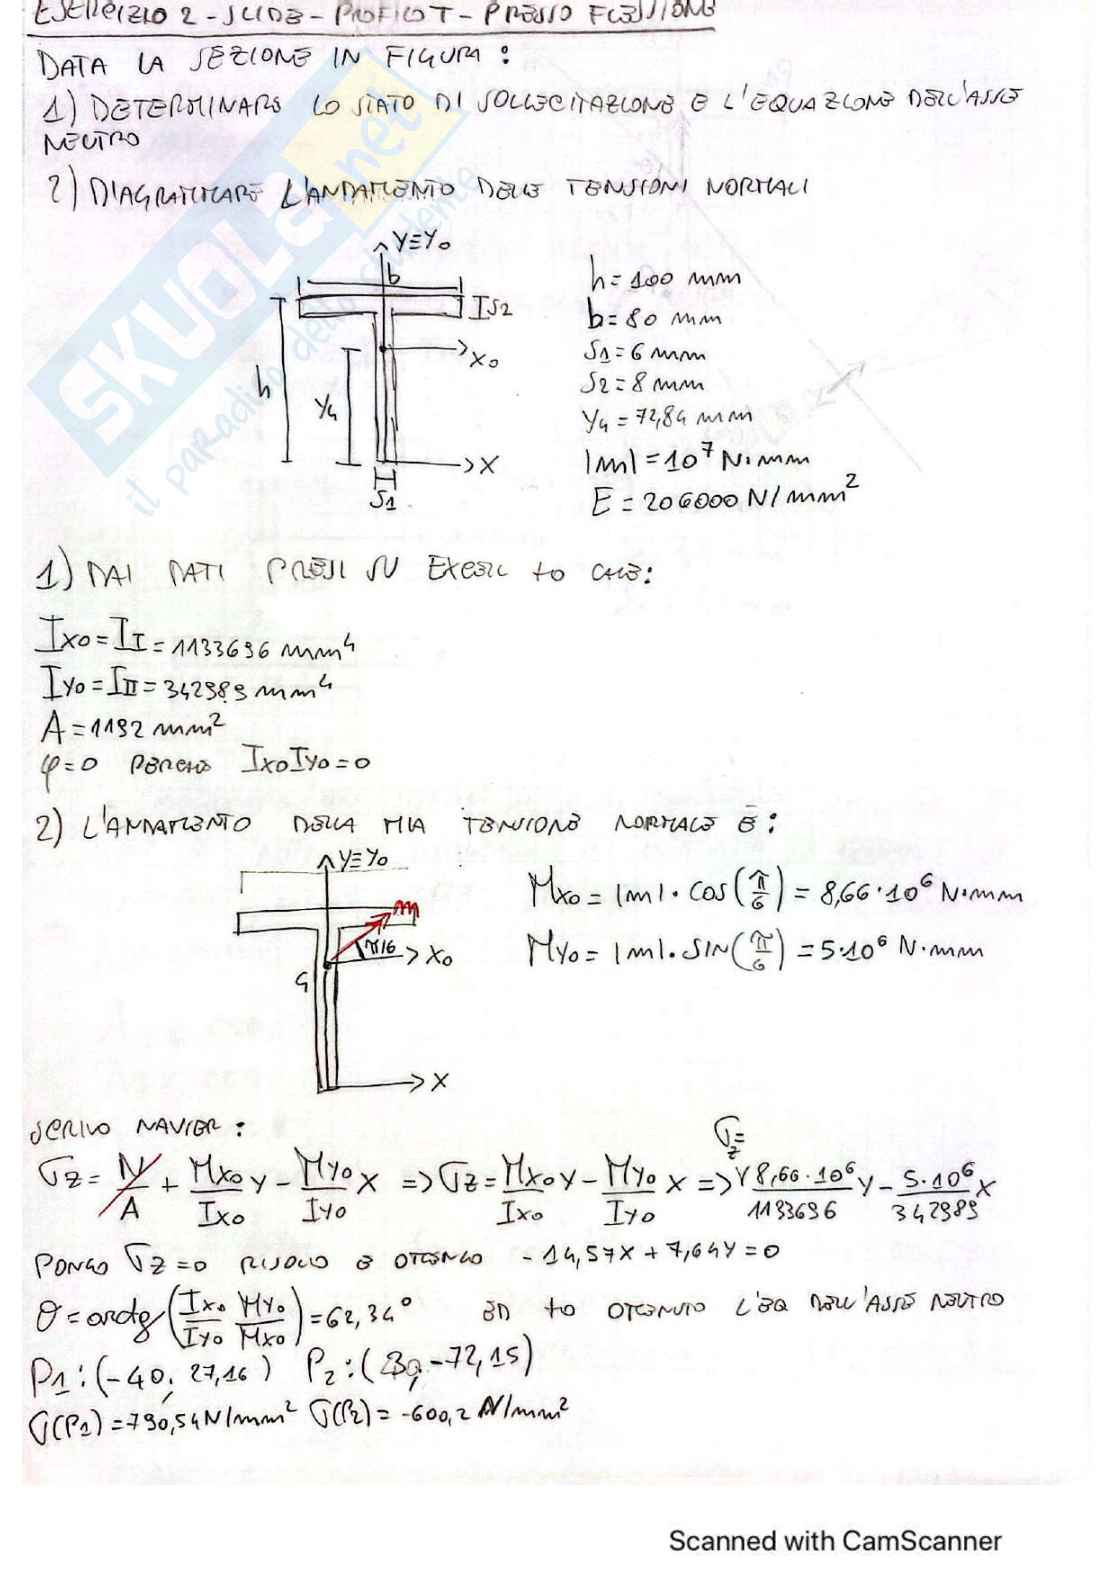 ESERCIZIO 2 - SLIDE - PROFILO T - PRESSO FLESSIONE
DATA LA SEZIONE IN FIGURA:
1) DETERMINARE LO STATO DI SOLLECITAZIONE E L'EQUAZIONE DELL'ASSE
NEUTRO
2) DIAGRAMMARE L'ANDAMENTO DELLE TENSIONI NORMALI
Y≡Y₀
b
S2
X₀
h
Y₄
X
S1
h = 100 mm
b = 80 mm
S1 = 6 mm
S2 = 8 mm
Y₄ = 72,84 mm
|m| = 10⁷ N·mm
E = 206000 N/mm²
1) DAI DATI PRESI SU EXCEL HO CHE:
Ix₀ = I_I = 1133696 mm⁴
Iy₀ = I_II = 342989 mm⁴
A = 1192 mm²
φ = 0 PERCHÉ Ix₀Iy₀ = 0
2) L'ANDAMENTO DELLA MIA TENSIONE NORMALE È:
Y≡Y₀
m
π/6
X₀
G
X
Mx₀ = |m| · cos(π/6) = 8,66·10⁶ N·mm
My₀ = |m| · SIN(π/6) = 5·10⁶ N·mm
SCRIVO NAVIER:
σz = N/A + Mx₀/Ix₀ y - My₀/Iy₀ x => σz = Mx₀/Ix₀ y - My₀/Iy₀ x => σz = 8,66·10⁶/1133696 y - 5·10⁶/342989 x
PONGO σz = 0 RISOLVO E OTTENGO -14,57x + 7,64y = 0
θ = arctg(Ix₀/Iy₀ My₀/Mx₀) = 62,34° ED HO OTTENUTO L'EQ DELL'ASSE NEUTRO
P1: (-40; 27,16) P2: (3, -72,15)
σ(P1) = 790,54 N/mm² σ(P2) = -600,2 N/mm²
SKUOLA.net
il paradiso dello studente
Scanned with CamScanner